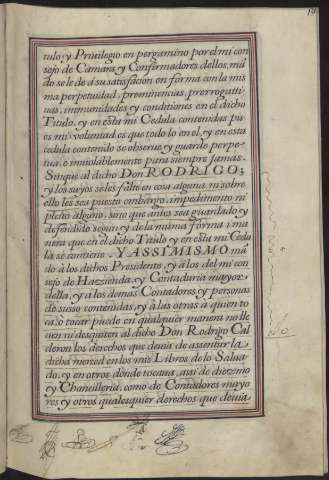 tulo, y Priuilegio en pergamino por el mi con
sejo de Camara, y Confirmadores dellos, mā
do se le de â su satisfaçion en forma con la mis
ma perpetuidad, preminençias, prerrogatti
uas, inmunidades y condiţiones en el dicho
Titulo, ey en esta mi Cedula contenidas pu
es mi voluntad es que todo lo en el, ey en esta
cedula contenido se obserue, ey guarde perpe
tua, e inuiolablemente para siempre Jamas.
Sin que al dicho DON RODRIGO;
y los suyos se les falte en cosa alguna, ni sobre
ello les sea puesto embargo, impedimento ni
pleito alguno, sino que antes sea guardado y
defendido segun, ey de la misma forma i ma
nera que en el dicho Titulo ey en esta mi Cedu
la se contiene. Y ASSI MISMO mā
do â los dichos Presidente, ey â los del mi con
sejo de Hazienda, ey Contaduria mayor
della, ey a los demas Contadores ey personas
de susso contenidas, ey â las otras â quien to
ca ô tocar puede en qualquier manera no lle
uen ni desquiten al dicho Don Rodrigo Cal
deron los derechos que deuia de assentar la
dicha merced en los mis Libros de lo Salua
do, ey en otros donde tocaua, assi de diezmo
ey Chançilleria, como de Contadores mayo
res ey otros qualesquier derechos que deuia